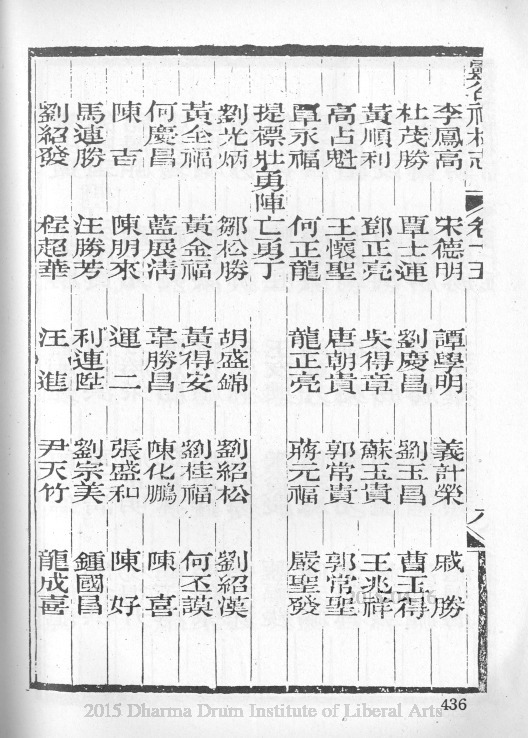 雲谷寺志 卷十五 八
李鳳高 宋德明 譚學明 義計榮 戚勝
杜茂勝 覃士連 劉慶昌 劉玉昌 曹玉得
黃順利 鄧正亮 吳得章 蘇玉貴 王兆祥
高占魁 王懷聖 唐朝貴 郭常貴 郭常聖
覃永福 何正龍 龍正亮 蔣元福 嚴聖發
提標壯勇陣亡勇丁
劉光炳 鄒松勝 胡盛錦 劉紹松 劉紹漢
黃全福 黃金福 黃得安 劉桂福 何丕謨
何慶昌 藍展淸 韋勝昌 陳化鵬 陳喜
陳吉 陳朋來 運二 張盛和 陳好
馬連勝 汪勝芳 利連陞 劉宗美 鍾國昌
劉紹發 程超華 汪進 尹天竹 龍成喜
436
2015 Dharma Drum Institute of Liberal Arts